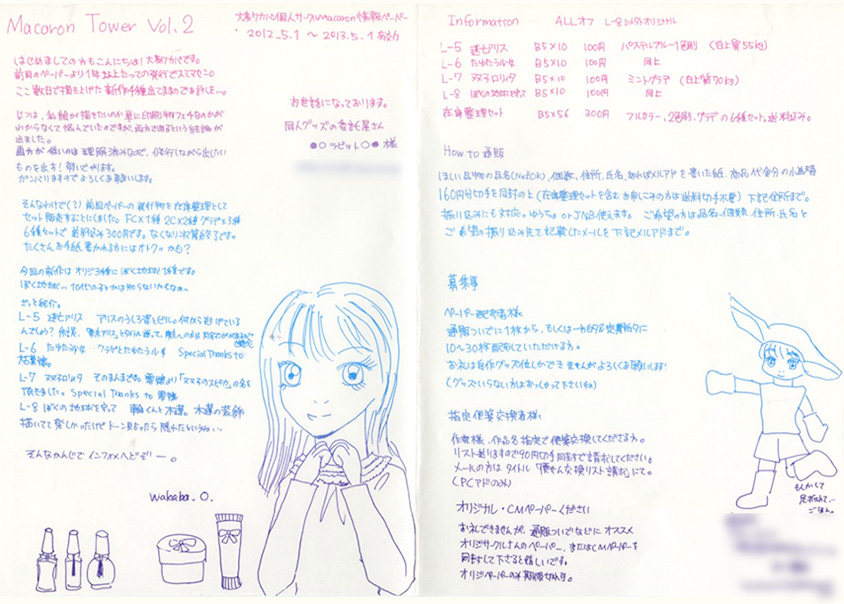 Macaron Tower Vol.2
大春ワカバ個人サークルMacaron情報ペーパー
2012.5.1 ～ 2013.5.1 有効
はじめましての方もこんにちは!大春ワカバです。
前回のペーパーより1年以上たっての発行でスミマセン。
ここ数日で描き上げた新作4種出てますのでお許しを…。
お世話になっております。
同人グッズの委託屋さん
●○ラビット○● 様
じつは、私絵が描きたいのか単に印刷物フェチなのかが
わからなくて悩んでいたのですが、両方であるという結論が
出ました。
ものを出す!勢いでやります。
がんばりますのでよろしくお願いします。
そんなわけで(?)前回ペーパーの発行物を在庫整理として
セット販売することにしました。FC×1種 2C×2種 グラデ×3種
6種セットで 送料込み300円です。なくなり次第終了です。
たくさんお手紙書かれる方にはオトクかも?
今回の新作はオリジ3種にぼく地球が1種です。
ぼく地球が… 10代の子とかは知らないかもなぁ…
ざっと紹介。
L-5 逃亡アリス
L-6 たゆたう少女 クラゲとたゆたう少女 Special Thanks to
L-7 双子ロリィタ
頂きました。Special Thanks to
L-8 ぼくの地球を守って 輪くんと木蓮。木蓮の装飾
描いてて楽しかったけど トーン貼ったら隠れたというね…
そんなかんじで インフォへどぞー。
wakaba.O.
Information ALLオフ L-8以外オリジナル
L-5 逃亡アリス B5×10 100円 パステルブルー1色刷 (白上質55kg)
L-6 たゆたう少女 B5×10 100円 同上
L-7 双子ロリィタ B5×10 100円 ミントグラデ (白上質70kg)
L-8 ぼくの地球を守って B5×10 100円 同上
在庫整理セット B5×56 300円 フルカラー、2色刷、グラデの6種セット。送料込み。
How to 通販
ほしい品物の品名(No.もOK)、個数、住所、氏名、あればメルアドを書いた紙、商品代金分の小為替
160円分切手を同封の上(在庫整理セットを含むお申しこみの方は送料切手不要)下記住所まで。
振り込みにも対応。ゆうちょ or JNB使えます。 ご希望の方は品名、個数、住所、氏名と
ご希望の振り込み先を記載したメールを下記メルアドまで。
募集事
ペーパー配布者様
通販ついでに1枚から、もしくは一カ所&定期的に
10～30枚配布していただける方。
お礼は自作グッズ位しかできませんがよろしくお願いします!
(グッズいらない方はおっしゃって下さいね)
指定便箋交換者様
作家様、作品名指定で便箋交換してくださる方。
リスト送りますので90円切手同封で請求してください。
メールの方はタイトル「便せん交換リスト請求」にて。
(PCアドのみ)
オリジナル・CMペーパーください
お礼できませんが、通販ついでなどに オススメ
オリジサークルさんのペーパー、またはCMペーパーを
同封して下さると嬉しいです。
オリジペーパーのみ期限切れ可。
もしかして
足されて…
ごほん。